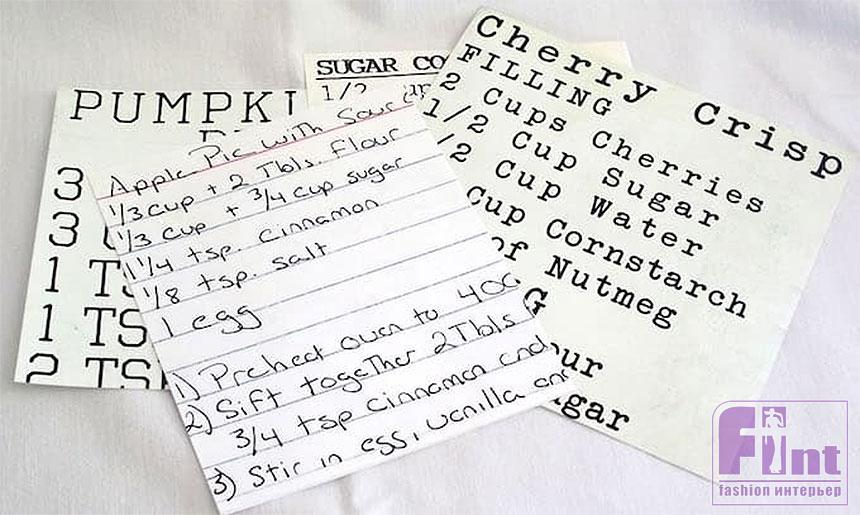 PUMPKI
3
3
1 TS
1 TS
2 TS
SUGAR CO
1/2
Apple Pie with Sour
1/3 cup + 2 Tbls. flour
1/3 cup + 3/4 cup sugar
1 1/4 tsp. cinnamon
1/8 tsp. salt
1 egg
1) Preheat oven to 400
2) Sift together 2 Tbls
3/4 tsp cinnamon and
3) Stir in egg, vanilla and
Cherry Crisp
FILLING
2 Cups Cherries
1/2 Cup Sugar
/2 Cup Water
Cup Cornstarch
of Nutmeg
G
our
ugar
Flint
fashion интерьер